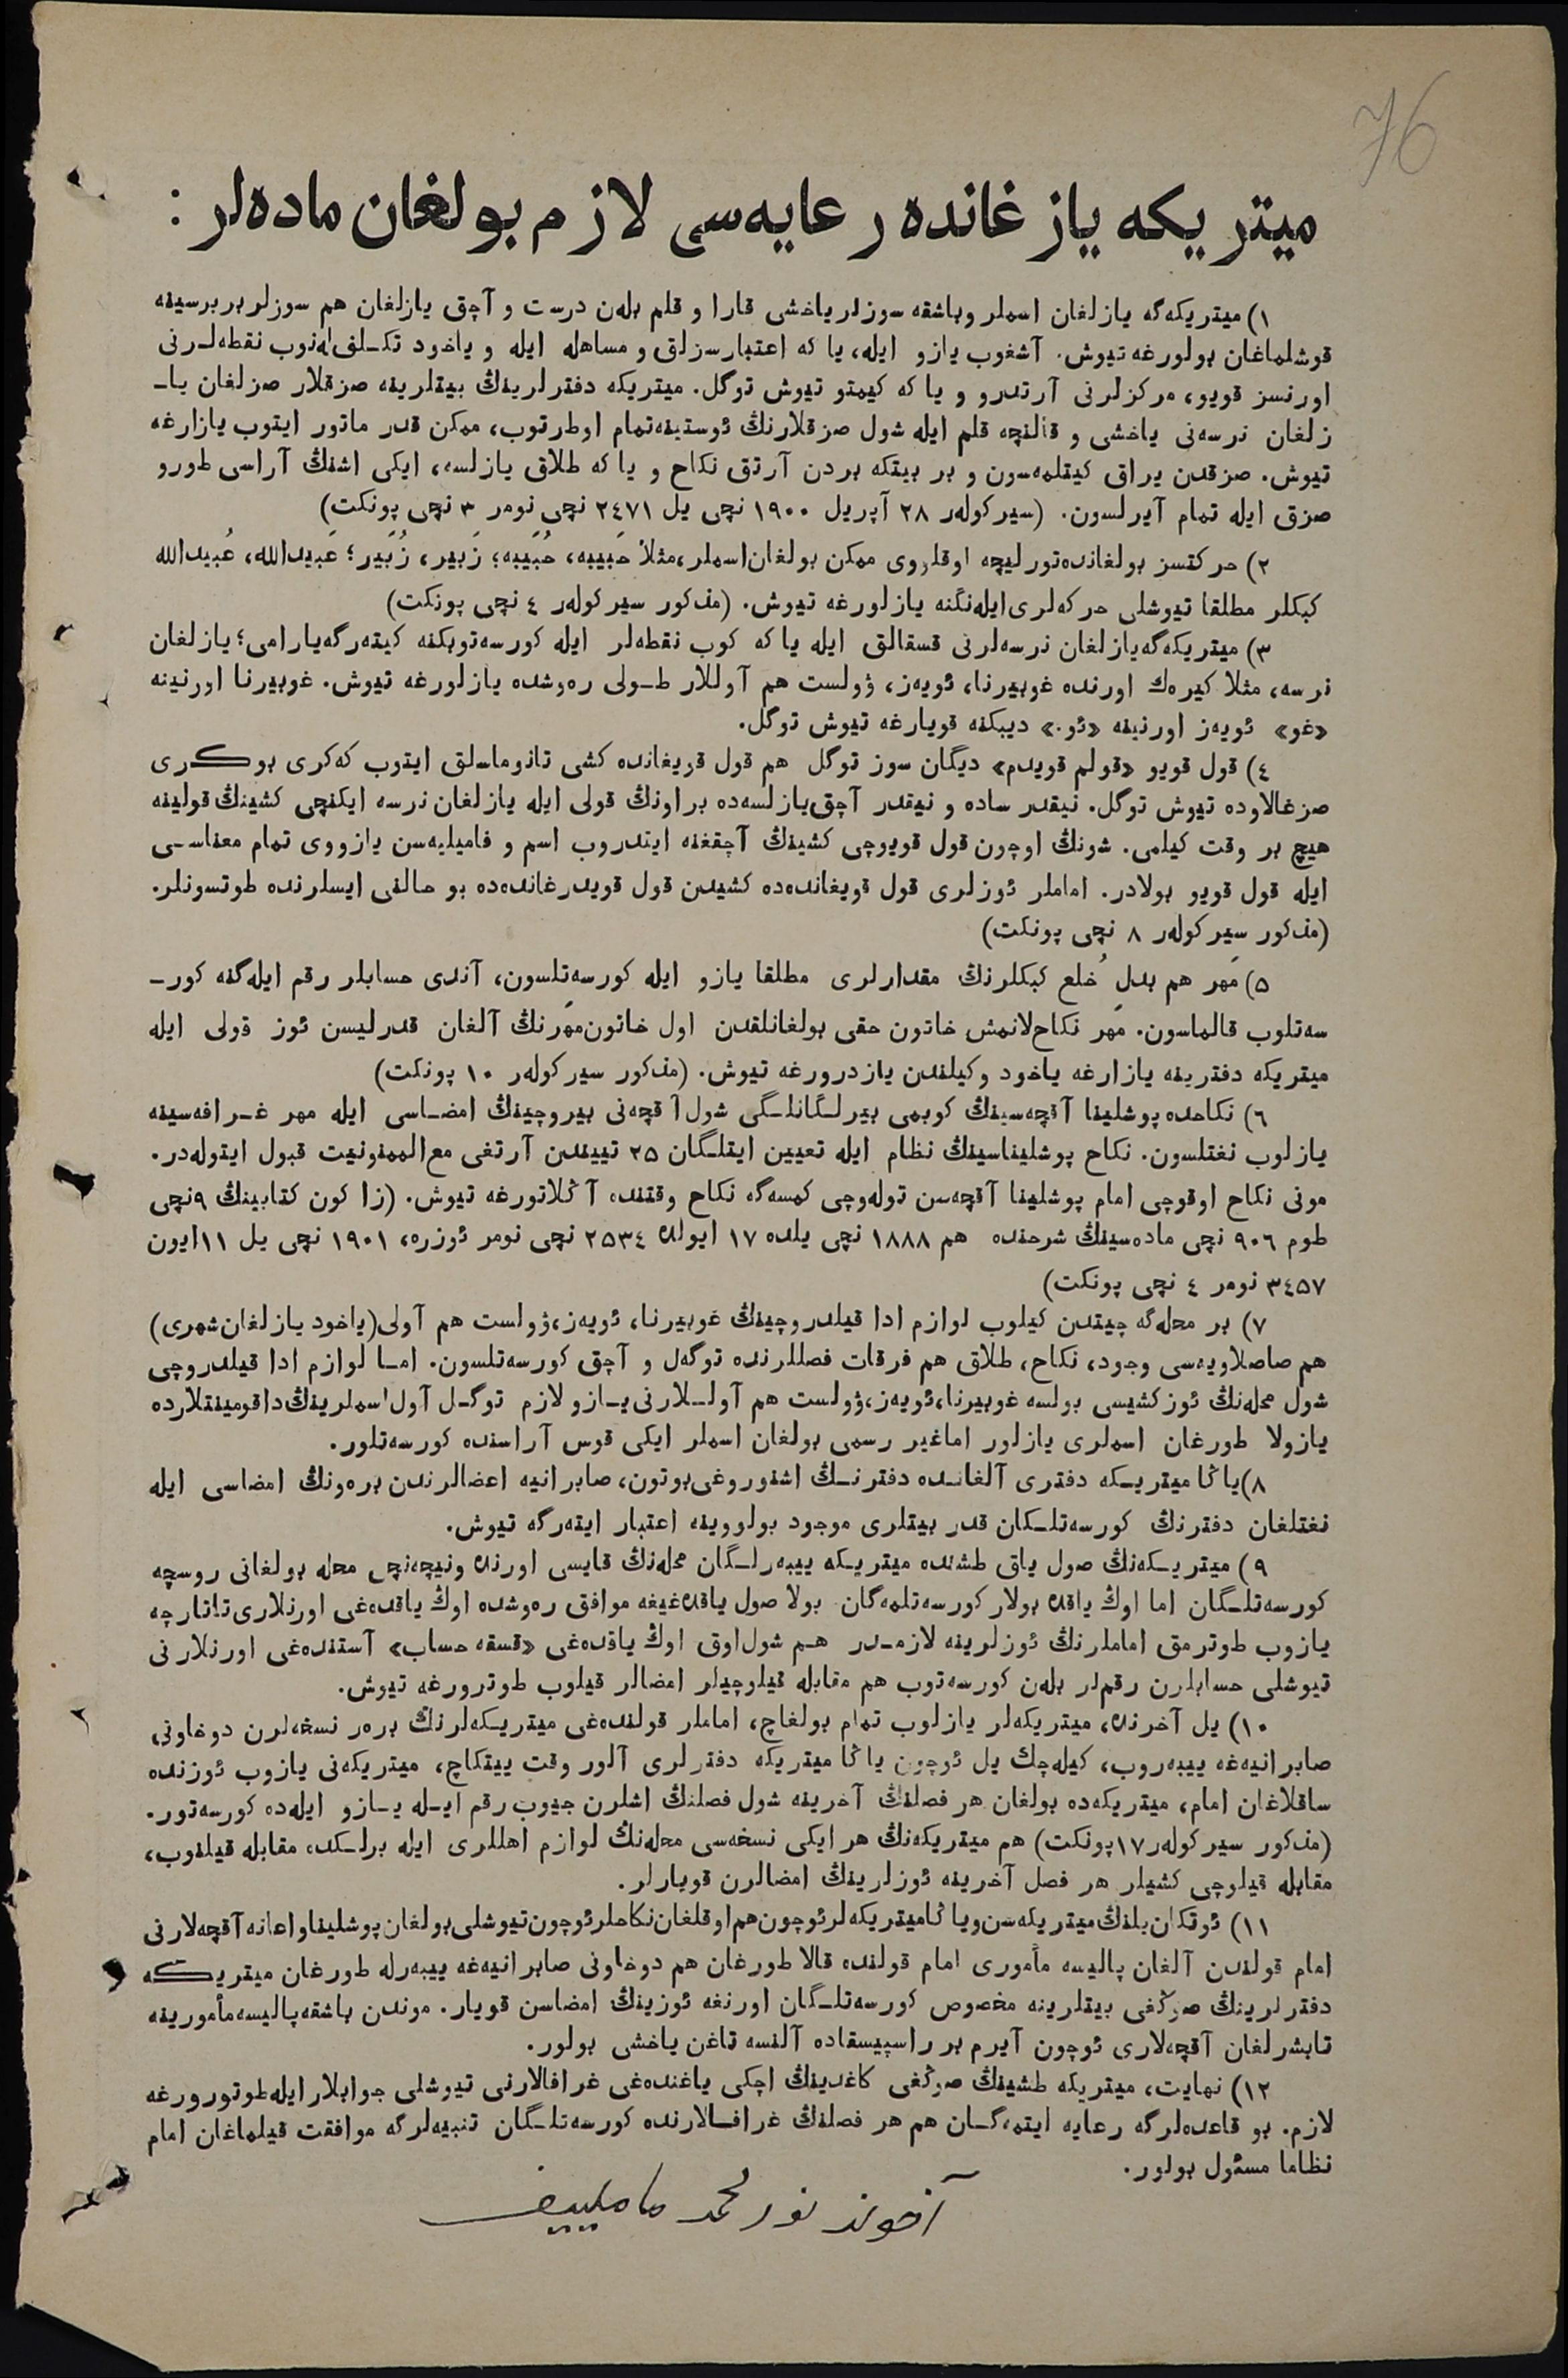 76
ميتريكه يازغانده رعايه‌سى لازم بولغان ماده‌لر :
١) ميتريكه‌گه يازلغان اسملر وباشقه سوزلر ياخشى قارا و قلم بله‌ن درست و آچق يازلغان هم سوزلر بربرسينه
قوشلماغان بولورغه تيوش. آشغوب يازو ايله، يا كه اعتبارسزلق و مساهله ايله و ياخود تكـلفله‌نوب نقطه‌لـرنى
اورنسز قويو، مركزلرنى آرتدرو و يا كه كيمتو تيوش توگل. ميتريكه دفترلرينڭ بيتلرينه صزقلار صزلغان يا‌ـ
زلغان نرسه‌نى ياخشى و قالنچه قلم ايله شول صزقلارنڭ ئوستينه‌تمام اوطرتوب، ممكن قدر ماتور ايتوب يازارغه
تيوش. صزقدن يراق كيتلمه‌سون و بر بيتكه بردن آرتق نكاح و يا كه طلاق يازلسه، ايكى اشنڭ آراسى طورو
صزق ايله تمام آيرلسون. (سيركوله‌ر ٢٨ آپريل ١٩٠٠ نچى يل ٢٤٧١ نچى نومر ٣ نچى پونكت)
٢) حركتسز بولغانده‌تورليچه اوقلووى ممكن بولغان‌اسملر،مثلاً حَبيبه، حُبَيبه؛ زَبير، زُبَير؛ عَبيدالله، عُبيدالله
كبكلر مطلقا تيوشلى حركه‌لرى‌ايله‌نگنه يازلورغه تيوش. (مذكور سيركوله‌ر ٤ نچى پونكت)
٣) ميتريكه‌گه‌يازلغان نرسه‌لرنى قسقالق ايله يا كه كوب نقطه‌لر ايله كورسه‌توبكنه كيته‌رگه‌يارامى؛ يازلغان
نرسه، مثلا كيره‌ك اورنده غوبيرنا، ئويه‌ز، ۋولست هم آوللار طـولى ره‌وشده يازلورغه تيوش. غوبيرنا اورنينه
«غو» ئويه‌ز اورنينه «ئو.» ديبكنه قويارغه تيوش توگل.
٤) قول قويو «قولم قويدم» ديگان سوز توگل هم قول قويغانده كشى تانوماسلق ايتوب كه‌كرى بوكـرى
صزغالاوده تيوش توگل. نيقدر ساده و نيقدر آچق‌يازلسه‌ده براونڭ قولى ايله يازلغان نرسه ايكنچى كشينڭ قولينه
هيچ بر وقت كيلمى. شونڭ اوچون قول قويوچى كشينڭ آچقغنه ايتدروب اسم و فاميليه‌سن يازووى تمام معناسـى
ايله قول قويو بولادر. اماملر ئوزلرى قول قويغانده‌ده كشيدن قول قويدرغانده‌ده بو حالنى ايسلرنده طوتسونلر.
(مذكور سيركوله‌ر ٨ نچى پونكت)
٥) مَهر هم بدل خُلع كبكلرنڭ مقدارلرى مطلقا يازو ايله كورسه‌تلسون، آندى حسابلر رقم ايله‌گنه كور‌ـ
سه‌تلوب قالماسون. مَهر نكاح‌لانمش خاتون حقى بولغانلقدن اول خاتون‌مَهرنڭ آلغان قدرليسن ئوز قولى ايله
ميتريكه دفترينه يازارغه ياخود وكيلندن يازدرورغه تيوش. (مذكور سيركوله‌ر ١٠ پونكت)
٦) نكاحده پوشلينا آقچه‌سينڭ كوبمى بيرلـگانلـگى شول‌آقچه‌نى بيروچينڭ امضـاسى ايله مهر غـرافه‌سينه
يازلوب نغتلسون. نكاح پوشليناسينڭ نظام ايله تعيين ايتلـگان ٢٥ تييندن آرتغى مع‌الممنونيت قبول ايتوله‌در.
مونى نكاح اوقوچى امام پوشلينا آقچه‌سن توله‌وچى كمسه‌گه نكاح وقتنده آڭلاتورغه تيوش. (زاكون كتابينڭ ٩نچى
طوم ٩٠٦ نچى ماده‌سينڭ شرحنده هم ١٨٨٨ نچى يلده ١٧ ايولده ٢٥٣٤ نچى نومر ئوزره، ١٩٠١ نچى يل ١١ايون
٣٤٥٧ نومر ٤ نچى پونكت)
٧) بر محله‌گه چيتدن كيلوب لوازم ادا قيلدروچينڭ غوبيرنا، ئويه‌ز،ۋولست هم آولى(ياخود يازلغان‌شهرى)
هم صاصلاويه‌سى وجود، نكاح، طلاق هم فرقات فصللرنده توگه‌ل و آچق كورسه‌تلسون. امـا لوازم ادا قيلدروچى
شول محله‌نڭ ئوزكشيسى بولسه غوبيرنا،ئويه‌ز،ۋولست هم آولـلارنى يـازو لازم توگـل آول اسملرينڭ‌داقومينتلارده
يازولا طورغان اسملرى يازلور اماغير رسمى بولغان اسملر ايكى قوس آراسنده كورسه‌تلور.
٨)ياڭا ميتريـكه دفترى آلغانـده دفترنـڭ اشنوروغى‌بوتون، صابرانيه اعضالرندن بره‌ونڭ امضاسى ايله
نغتلغان دفترنڭ كورسه‌تلـكان قدر بيتلرى موجود بولووينه اعتبار ايته‌رگه تيوش.
٩) ميتريـكه‌نڭ صول ياق طشنده ميتريـكه ييبه‌رلـگان محله‌نڭ قايسى اورنده ونيچه‌نچى محله بولغانى روسچه
كورسه‌تلـگان اما اوڭ ياقده بولار كورسه‌تلمه‌گان بولا صول ياقده‌غيغه موافق ره‌وشده اوڭ ياقده‌غى اورنلارى‌تاتارچه
يازوب طوترمق اماملرنڭ ئوزلرينه لازمـدر هـم شول‌اوق اوڭ ياقده‌غى «قسقه حساب» آستنده‌غى اورنلارنى
تيوشلى حسابلرن رقملر بله‌ن كورسه‌توب هم مقابله قيلوچيلر امضالر قيلوب طوترورغه تيوش.
١٠) يل آخرنده، ميتريكه‌لر يازلوب تمام بولغاچ، اماملر قولنده‌غى ميتريـكه‌لرنڭ بره‌ر نسخه‌لرن دوخاونى
صابرانيه‌غه ييبه‌روب، كيله‌چك يل ئوچون ياڭا ميتريكه دفترلرى آلور وقت ييتكاچ، ميتريكه‌نى يازوب ئوزنده
ساقلاغان امام، ميتريكه‌ده بولغان هر فصلنڭ آخرينه شول فصلنڭ اشلرن جيوب رقم ايـله يـازو ايله‌ده كورسه‌تور.
(مذكور سيركوله‌ر١٧پونكت) هم ميتريكه‌نڭ هر ايكى نسخه‌سى محله‌نڭ لوازم اهللرى ايله برلـكده مقابله قيلنوب،
مقابله قيلوچى كشيلر هر فصل آخرينه ئوزلرينڭ امضالرن قويارلر.
١١) ئوتكان‌يلنڭ‌ميتريكه‌سن‌وياڭاميتريكه‌لرئوچون‌هم‌اوقلغان‌نكاحلرئوچون‌تيوشلى‌بولغان‌پوشليناواعانه‌آقچه‌لارنى
امام قولندن آلغان پاليسه مأمورى امام قولنده قالا طورغان هم دوخاونى صابرانيه‌غه ييبه‌رله طورغان ميتريـكه
دفترلرينڭ صوڭغى بيتلرينه مخصوص كورسه‌تلـگان اورنغه ئوزينڭ امضاسن قويار. موندن باشقه‌پاليسه‌مأمورينه
تابشرلغان آقچه‌لارى ئوچون آيرم بر راسپيسقاده آلنسه تاغن ياخشى بولور.
١٢) نهايت، ميتريكه طشينڭ صوڭغى كاغدينڭ اچكى ياغنده‌غى غرافالارنى تيوشلى جوابلار ايله‌طوتورورغه
لازم. بو قاعده‌لرگه رعايه ايتمه‌گـان هم هر فصلنڭ غرافـالارنده كورسه‌تلـگان تنبيه‌لرگه موافقت قيلماغان امام
نظاما مسئول بولور.
آخوند نورمحمد مامليیف